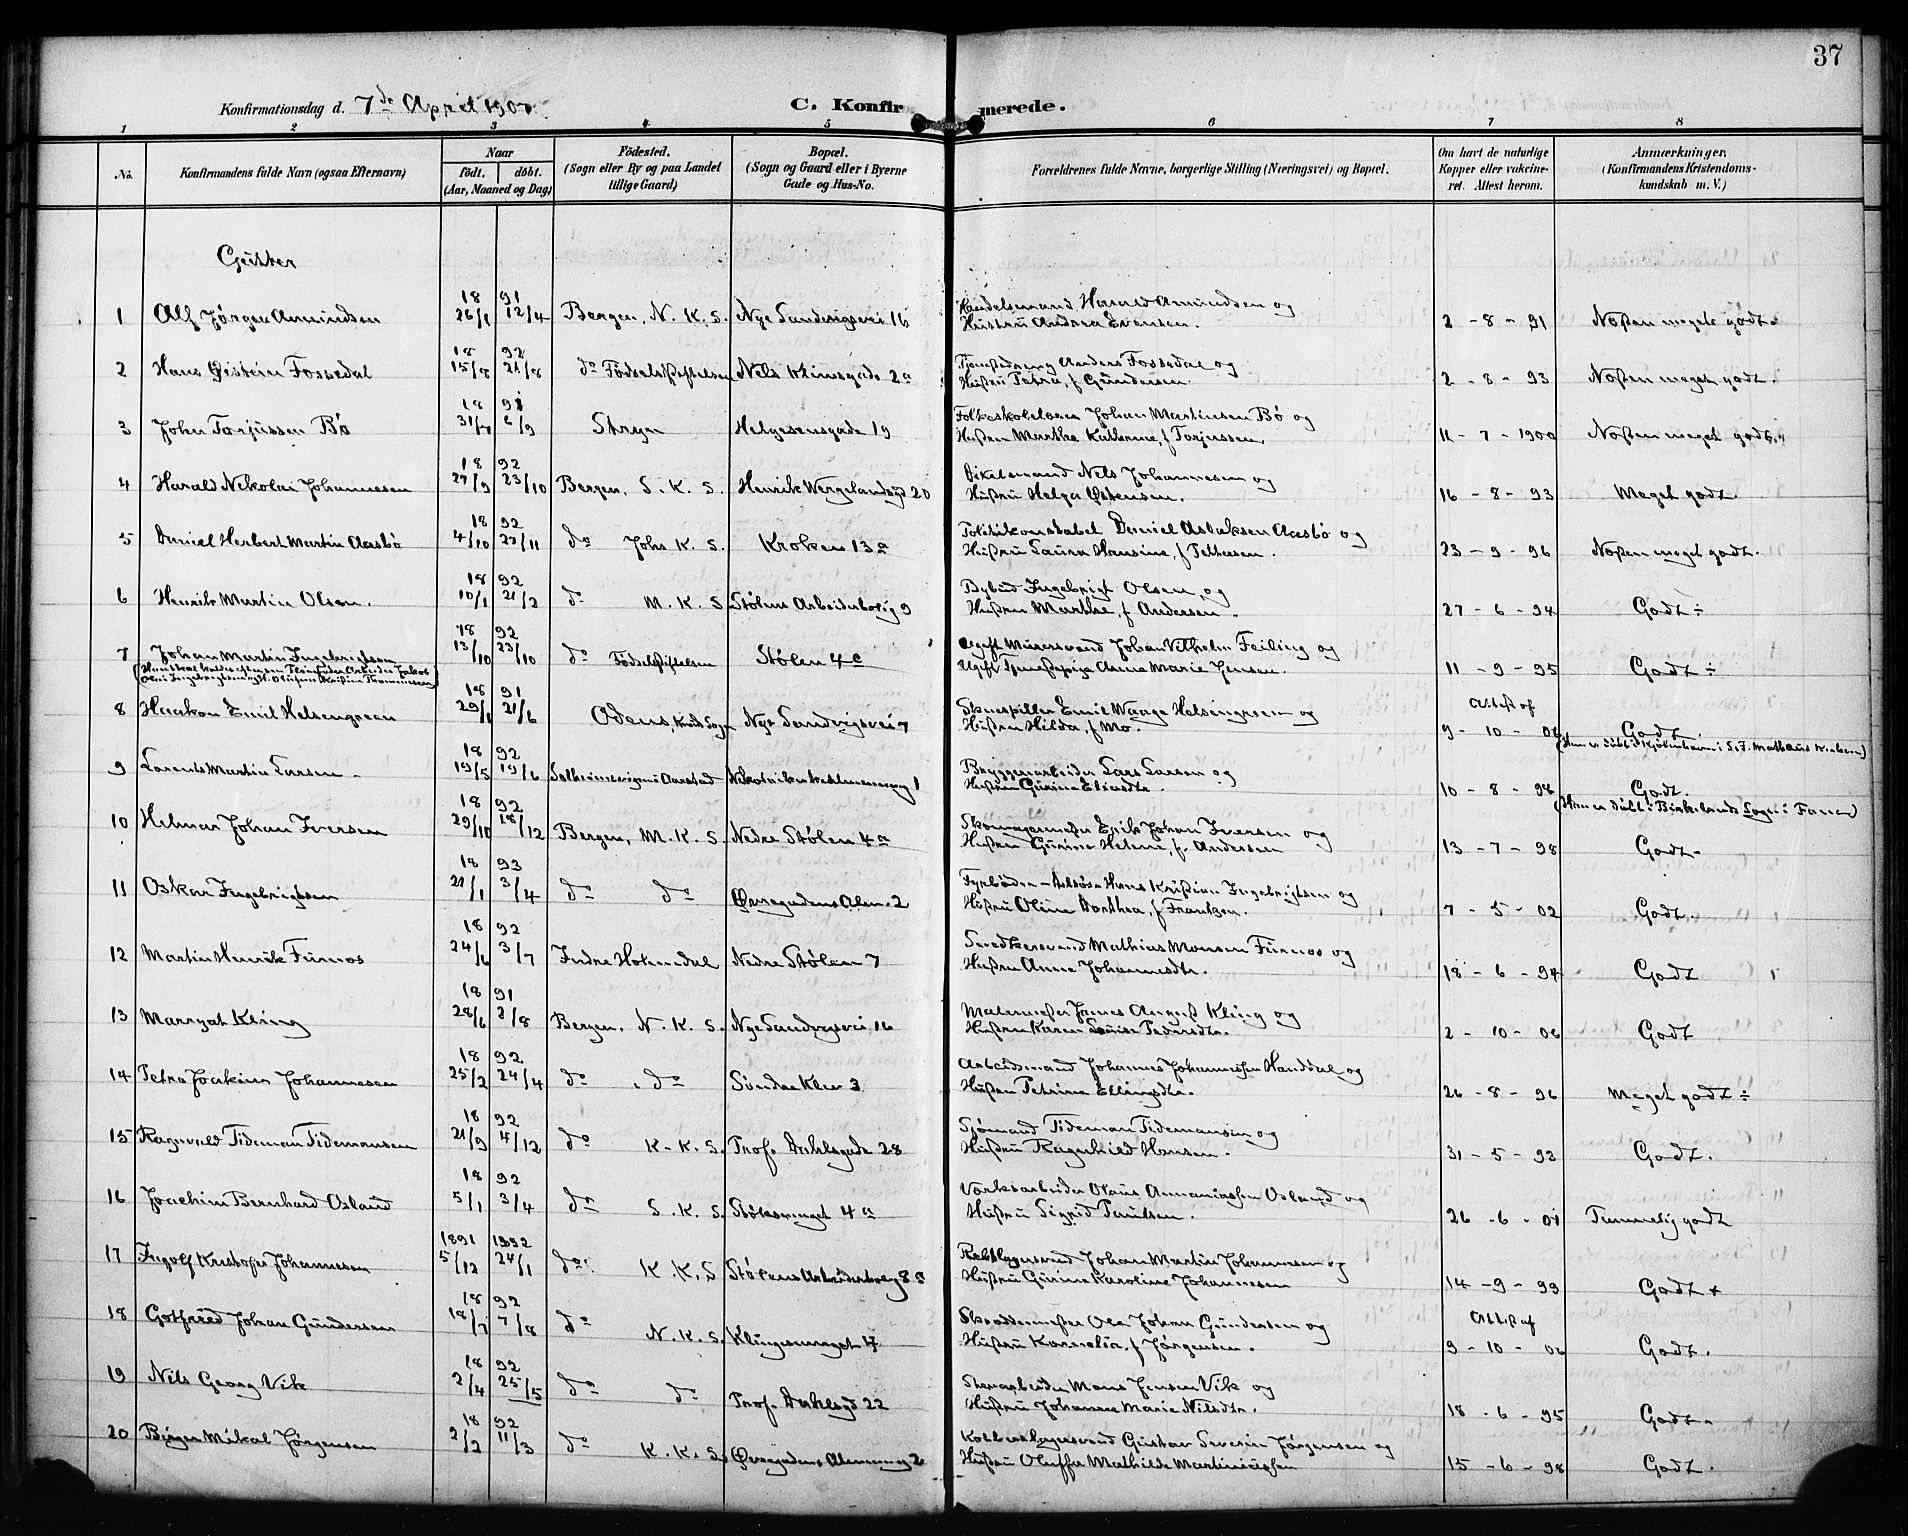 37
Konfirmationsdag d. 7de April 190
C. Konfirmerede.
1 2 3 4 5 6 7 8
No.
Konfirmandens fulde Navn (ogsaa Efternavn)
Naar
født. døbt.
(Aar, Maaned og Dag)
Fødested.
(Sogn eller By og paa Landet
tillige Gaard)
Bopæl.
(Sogn og Gaard eller i Byerne
Gade og Hus-No.
Forældrenes fulde Navne, borgerlige Stilling (Næringsvei) og Bopæl.
Om havt de naturlige
Kopper eller vakcine-
ret. Attest herom.
Anmærkninger.
(Konfirmandens Kristendoms-
kundskab m. V.)
Gutter
1 Alf Jørgen Amundsen 18 91 26/1 12/4 Bergen, N. K. S. Nye Sandvigsvei 16
Handelsmand Harald Amundsen og
Hustru Andrea Evensen. 2 - 8 - 91 Næsten meget godt.
2 Hans Øistein Fossedal 18 92 15/8 21/8 do Fødselsstiftelsen Nels Klimsgade 2a
Anders Fossedal og
Hustru Petra, f Gundersen. 2 - 8 - 93 Næsten meget godt.
3 John Torjussen Bø 18 6/9 Stryn Helgesensgade 19
Folkeskolelærer Johan Martinsen Bø og
Hustru Marthe Kathrine, f Torjussen. 11 - 7 - 1900 Næsten meget godt.
4 Harald Nikolai Johannesen 18 92 27/9 23/10 Bergen, S. K. S. Henrik Wergelandsgd 20
Nels Johannesen og
Hustru Helga Østensen. 16 - 8 - 93 Meget godt.
5 Daniel Herbert Martin Aasbø 18 92 4/10 27/11 do Johs K. S. Kroken 13a
Politikonstabel Daniel Aslaksen Aasbø og
Hustru Laura Hansine, f Pettersen. 23 - 9 - 96 Næsten meget godt.
6 Henrik Martin Olsen. 18 92 10/1 21/2 do M. K. S Stølens Arbeiderbolig 9
Bybud Ingebrigt Olsen, og
Hustru Marthe, f Andersen. 27 - 6 - 94 Godt ÷
7 Johan Martin Ingebrigtsen 18 92 13/10 23/10 do Fødselsstiftelsen Stølen 4a
Ugift Murersvend Johan Vilhelm Feiling og
Ugift Tjenestepige Anna Marie Jensen. 11 - 9 - 95 Godt ÷
8 Haakon Emil Helsengreen 18 91 29/1 21/6 Odens, Nye Sandvigsvei 7
Skuespiller Emil Waage Helsengreen og
Hustru Hilda, f Mo. Attest af 9 - 10 - 06 Godt.
(Han er døbt i Kjøbenhavn i Sct. Mathæus Kirken)
9 Lorents Martin Larsen 18 92 19/5 19/6 Solheimsvigen i Aarstad Nikolaikirkealmenning 1
Bryggearbeider Lars Larsen og
Hustru Gurine Elinsdtr. 10 - 8 - 98 Godt.
(Han er døbt i Birkelands Sogn i Fane)
10 Helmer Johan Iversen 18 92 29/10 18/12 Bergen, M. K. S. Nedre Stølen 4a
Skomagermester Erik Johan Iversen og
Hustru Gurine Helene, f. Andersen 13 - 7 - 98 Godt.
11 Oskar Ingebrigtsen 18 93 21/1 3/4 do do Øvregadens Alm. 2
Fyrbøder Hans Kristian Ingebrigtsen og
Hustru Oline Dorthea, f Frantzen. 7 - 5 - 02 Godt.
12 Martin Henrik Furnes 18 92 24/6 3/7 Indre Holmedal Nedre Stølen 7
Snedkersvend Mathias Monsen Furnes og
Hustru Anna Johannesdtr. 18 - 6 - 94 Godt
13 Marryat Kling 18 91 28/6 2/8 Bergen, N. K. S. Nye Sandvigsvei 16
Malermester James August Kling og
Hustru Karen Lovise Pedersdtr. 2 - 10 - 06 Godt
14 Petra Joakim Johannesen 18 92 25/2 24/4 do do Søndre Klev 3
Arbeidsmand Johannes Johannessen Handdal og
Hustru Petrine Ellingsdtr. 26 - 8 - 96 Meget godt ÷
15 Ragnvald Tideman Tidemansen 18 92 21/9 4/12 do K. K. S. Prof. Dahlsgade 28
Sjømand Tideman Tidemansen og
Hustru Ragnhild Hansen. 31 - 5 - 93 Godt.
16 Joachim Bernhard Osland 18 92 5/1 3/4 do S. K. S. Stølesmuget 4a
Værksarbeider Olaus Annaniassen Osland og
Hustru Sigrid Paulsen. 26 - 6 - 01 Temmelig godt
17 Ingolf Kristofer Johannesen 1891 1892 5/12 24/1 do K. K. S Stølens Arbeiderbolig 8a
Rebslagersvend Johan Martin Johannesen og
Hustru Gurine Karoline Johannesen 14 - 9 - 93 Godt +
18 Gotfried Johan Gundersen 18 92 18/7 7/8 do N. K. S. Klingesmuget 4
Skræddermester Ole Johan Gundersen og
Hustru Kornelia, f Jørgensen. Attest af 9 - 10 - 06 Godt.
19 Nils Georg Vik 18 92 2/4 25/5 do do Prof. Dahlsgd 22
Mons Jensen Vik og
Hustru Johanne Marie Nilsdtr. 18 - 6 - 95 Godt.
20 Birger Mikal Jørgensen 18 92 2/2 11/3 do K. K. S. Øvregadens Almenning 2
Kobberslagersvend Gustav Severin Jørgensen og
Hustru Oluffa Mathilde Martinussen 15 - 6 - 98 Godt.